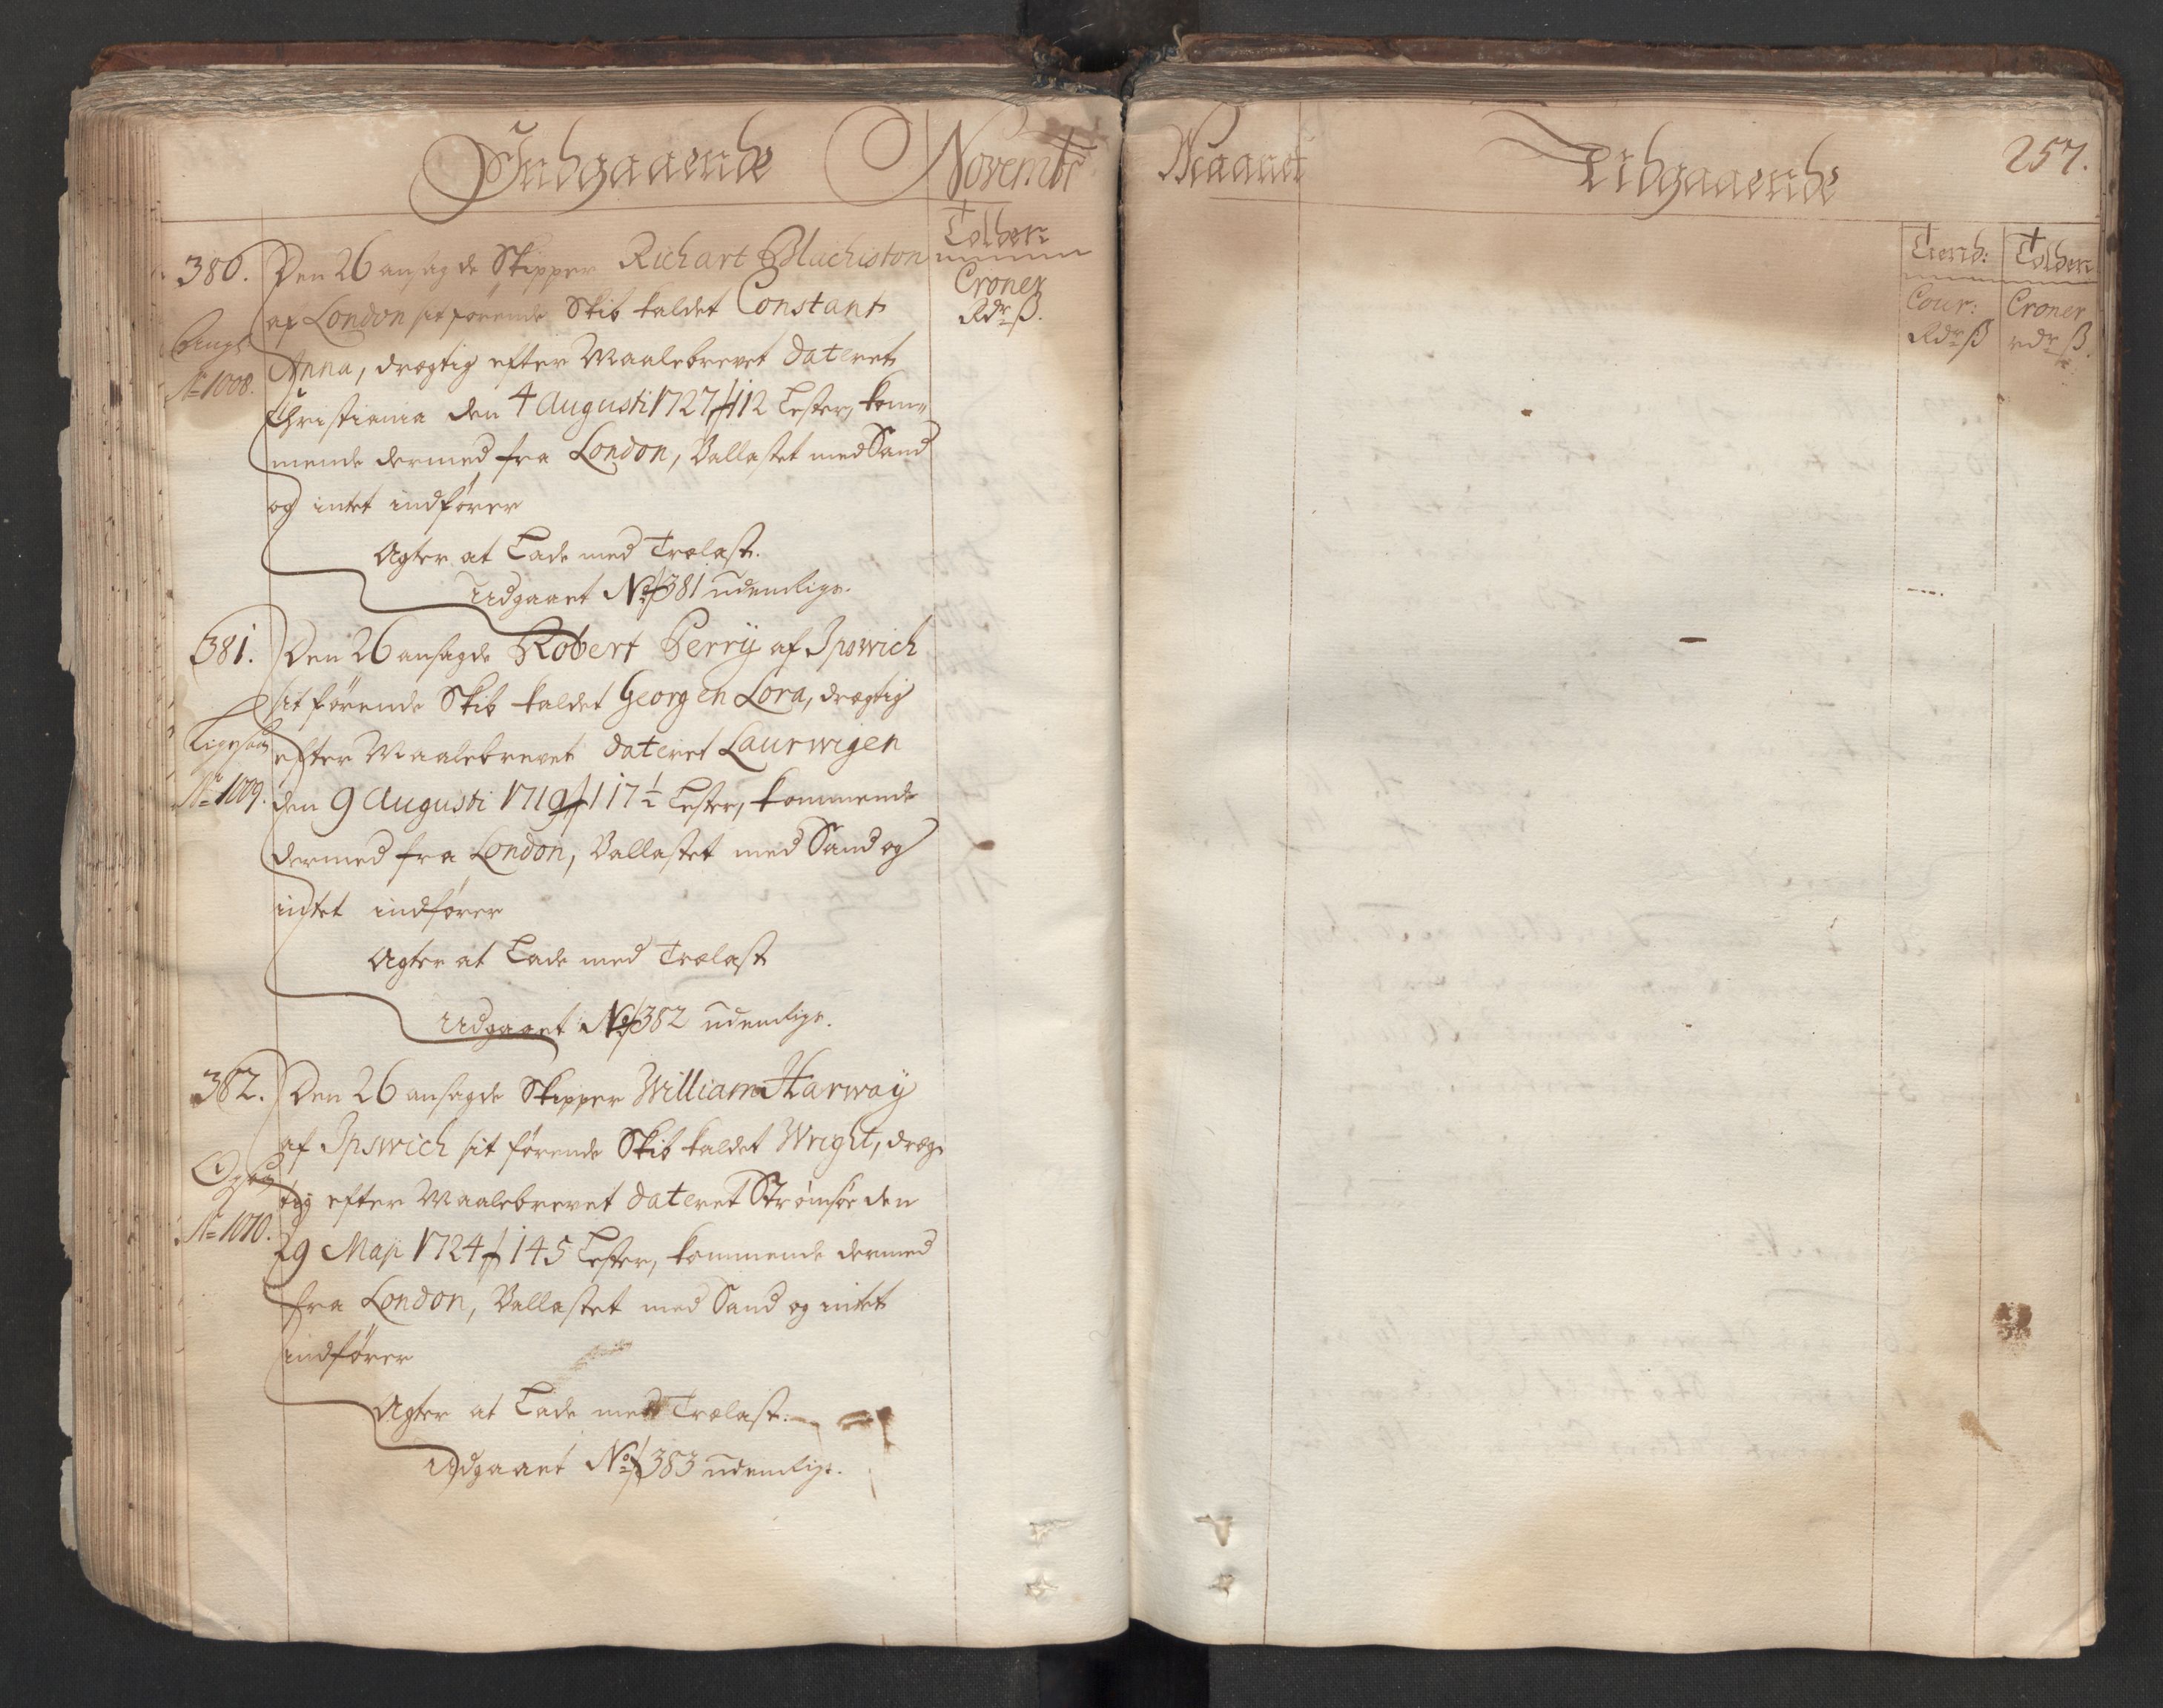 Indgaaende Novembr
Tolden
Croner
Rdr ß.
380. Den 26 ansagde Skipper Richart Bluchiston
af London sit førende Skib kaldet Constant
Anna, drægtig efter Maalebrevet dateret
No 1008.
Christiania den 4 Augusti 1727 / 112 Lester, kom-
mende dermed fra London, Ballastet med Sand
og intet indfører
Agter at Lade med Trælast.
Udgaaet No 381 udenlige.
381. Den 26 ansagde Robert Perrÿ af Ipswich
sit førende Skib kaldet Georg en Lora, drægtig
Ligesaa
efter Maalebrevet dateret Laurwigen
No 1009. den 9 Augusti 1719 / 117 1/2 Lester, kommende
dermed fra London, Ballastet med Sand og
intet indfører
Agter at Lade med Trælast
Udgaaet No 382 udenlige.
382. Den 26 ansagde Skipper William Harwaÿ
af Ipswich sit førende Skib kaldet Wright, dræg-
Ogsaa
tig efter Maalebrevet dateret Strømsøe den
No 1010.
29 Maji 1724 / 145 Lester, kommende dermed
fra London, Ballastet med Sand og intet
indfører
Agter at Lade med Trælast.
Udgaaet No 383 udenlige.
Maanet Udgaaende 257.
Tiend: Tolden
Cour: Croner
Rdr ß rdr ß.